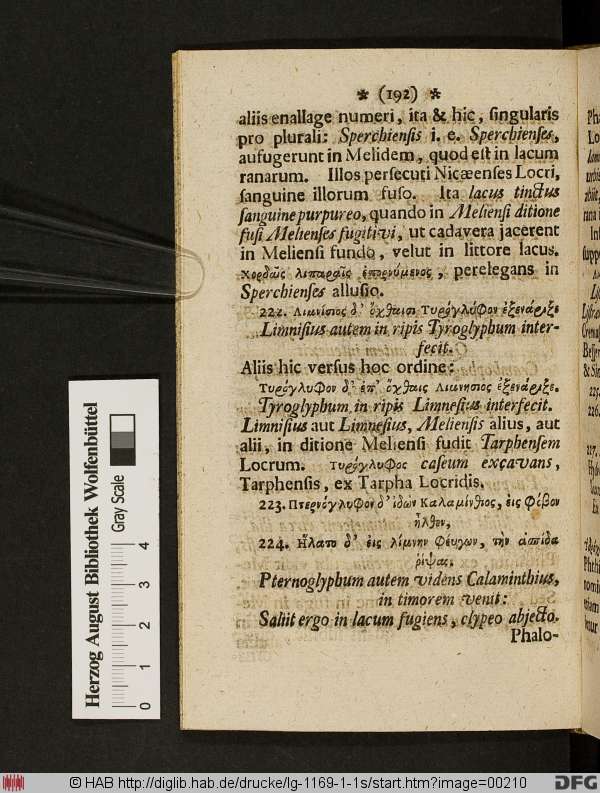 * (192) *
aliis enallage numeri, ita & hic, singularis
pro plurali: Sperchiensis i. e. Sperchienses,
aufugerunt in Melidem, quod est in lacum
ranarum. Illos persecuti Nicæenses Locri,
sanguine illorum fuso. Ita lacus tinctus
sanguine purpureo, quando in Meliensi ditione
fusi Melienses fugitivi, ut cadavera jacerent
in Meliensi fundo, velut in littore lacus.
χορδαῖς λιπαραῖς ἐπορνύμενος, perelegans in
Sperchienses allusio.
222. Λιμνίσιος δ' ὄχθαισι Τυρόγλυφον ἐξενάριξε
Limnisius autem in ripis Tyroglyphum inter-
fecit.
Aliis hic versus hoc ordine:
Τυρόγλυφον δ' ἐπ' ὄχθαις Λιμνησιος ἐξενάριξε.
Tyroglyphum in ripis Limnesius interfecit.
Limnisius aut Limnesius, Meliensis alius, aut
alii, in ditione Meliensi fudit Tarphensem
Locrum. τυρόγλυφος caseum excavans,
Tarphensis, ex Tarpha Locridis.
223. Πτερνόγλυφον δ' ἰδὼν Καλαμίνθιος, εἰς φόβον
ἦλθεν,
224. Ηλατο δ' εἰς λίμνην φεύγων, την ασπιδα
ῥίψας.
Pternoglyphum autem videns Calaminthius,
in timorem venit:
Saliit ergo in lacum fugiens, clypeo abjecto.
Phalo-
Herzog August Bibliothek Wolfenbüttel
Gray Scale
0 1 2 3 4
© HAB http://diglib.hab.de/drucke/lg-1169-1-1s/start.htm?image=00210
DFG